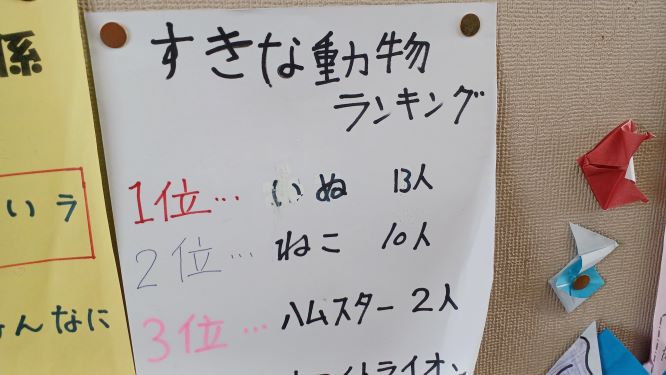 すきな動物
ランキング
1位… いぬ 13人
2位… ねこ 10人
3位… ハムスター 2人
ホワイトライオン
係
いう
んなに